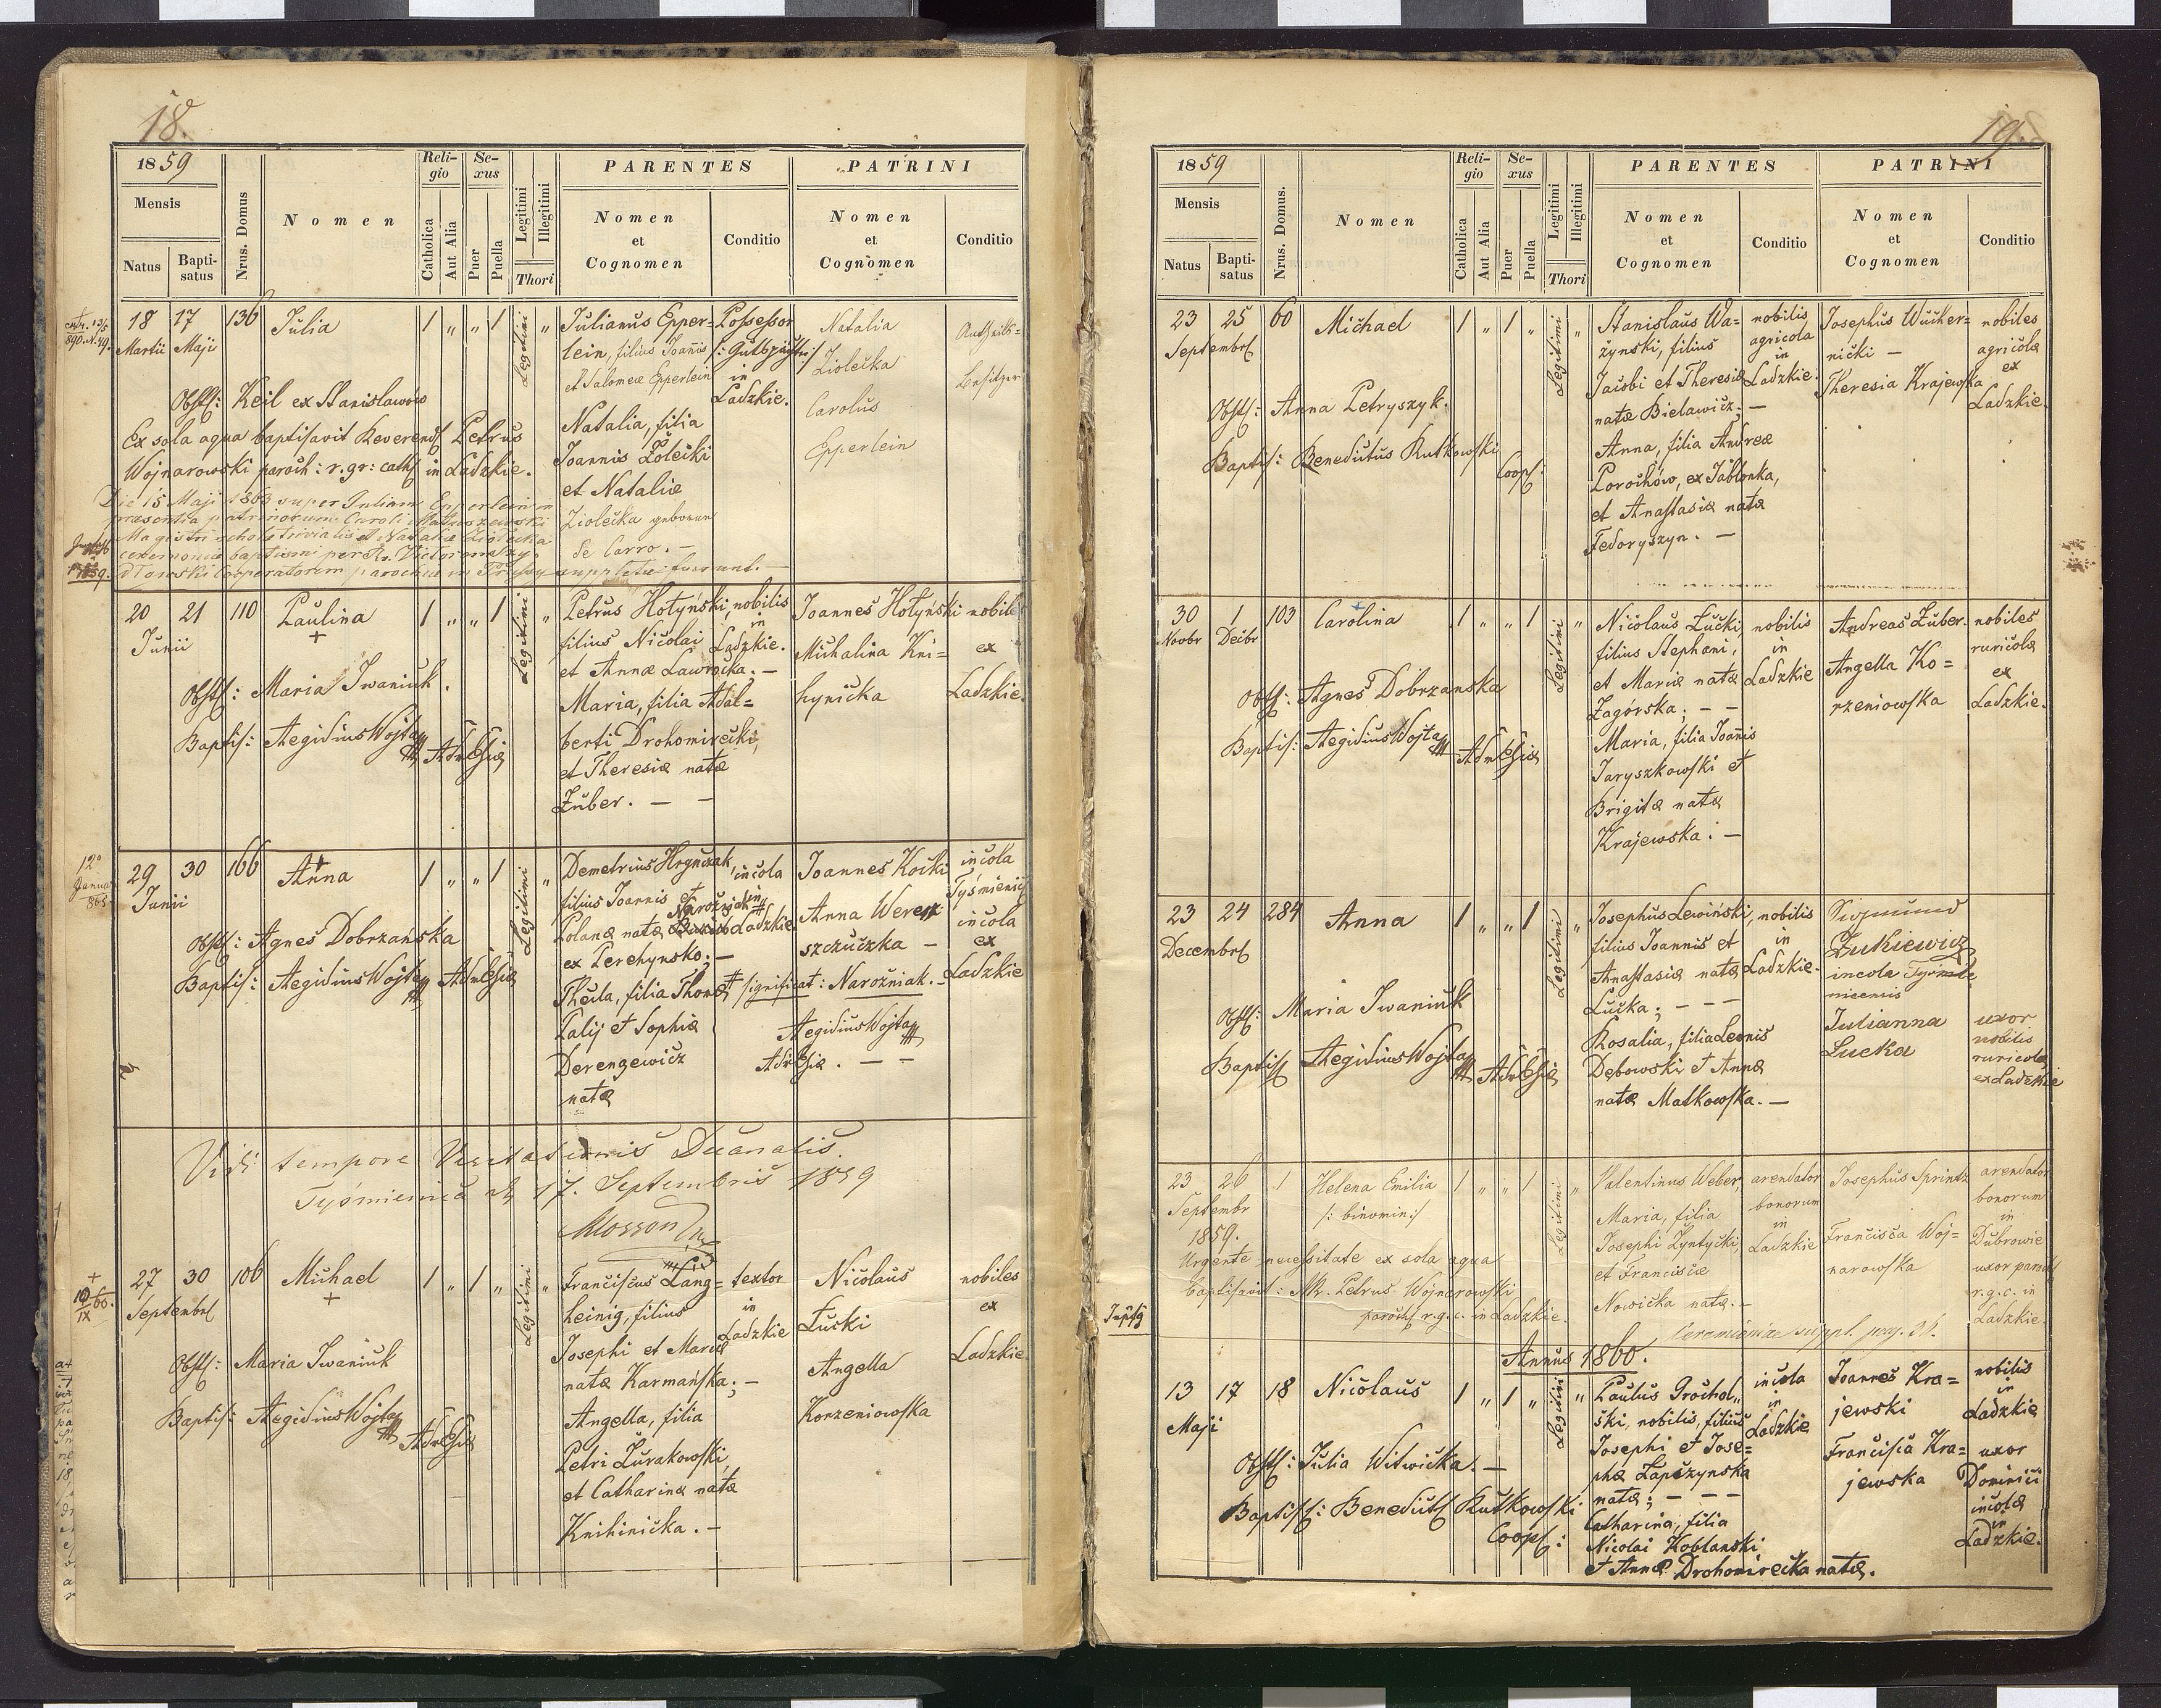 18.
1859
Mensis
Natus
Bapti-
satus
Nrus. Domus
Nomen
Reli-
gio
Catholica
Aut Alia
Se-
xus
Puer
Puella
Legitimi
Illegitimi
Thori
PARENTES
Nomen
et
Cognomen
Conditio
PATRINI
Nomen
et
Cognomen
Conditio
18 17 136 Julia 1 „ „ 1 Legitimi „
Martii Maji
Obst: Keil ex Stanislawów
Ex sola aqua baptisavit Reverend Petrus
Wojnarowski paroch: r. gr: cath in Ladzkie.
Die 15 Maji 1863 super Juliam Epperlein in
præsentia patrinorum Caroli
Magistri scholæ trivialis et Nataliæ Ziołecka
ceremoniæ baptismi per
Cooperatorem parochiæ in suppletæ fuerunt. —
Julianus Epper-
lein, filius Joannis
et Salomeæ Epperlein
Natalia, filia
Joannis Żołecki
et Nataliæ
Ziołecka geborene
de Carro. —
Possessor
in
Ladzkie.
Natalia
Ziołecka
Carolus
Epperlein
20 21 110 Paulina 1 „ „ 1 Legitimi „
+
Junii
Obst: Maria Iwaniuk.
Baptis: Aegidius Wojtas
Petrus Hołyński,
filius Nicolai
et Annæ Lawrocka. —
Maria, filia Adal=
berti Drohomirecki,
et Theresiæ natæ
Zuber. — —
nobilis
in
Ladzkie.
Joannes Hołyński
Michalina Kni=
hynicka
nobiles
ex
Ladzkie.
29 30 166 Anna 1 „ „ 1 Legitimi „
Junii
Obst: Agnes Dobrzańska
Baptis: Aegidius Wojtas
Demetrius Hrynczak,
filius Joannis et
Polanæ natæ
ex Perehynsko; —
Thecla, filia Thomæ
Palij et Sophiæ
Derengewicz
natæ
incola
in
Ladzkie
# significat: Narożniak. —
Aegidius Wojtas
Joannes Kocki
Anna Were
szczuczka —
incola
incola
ex
Ladzkie
Vidi tempore Visitationis Decanalis.
Tyśmienica 17. Septembris 1859
27 30 106 Michael 1 „ 1 „ Legitimi „
+
Septembr
Obst: Maria Iwaniuk
Baptis: Aegidius Wojtas
Franciscus Lang=
Leinig, filius
Josephi et Mariæ
natæ Karmańska; —
Angella, filia
Petri Żurakowski,
et Catharinæ natæ
Knihinicka. —
textor
in
Ladzkie
Nicolaus
Łucki
Angella
Korzeniowska
nobiles
ex
Ladzkie.
19.
1859
Mensis
Natus
Bapti-
satus
Nrus. Domus.
Nomen
Reli-
gio
Catholica
Aut Alia
Se-
xus
Puer
Puella
Legitimi
Illegitimi
Thori
PARENTES
Nomen
et
Cognomen
Conditio
PATRINI
Nomen
et
Cognomen
Conditio
23 25 60 Michael 1 „ 1 „ Legitimi „
Septembr
Obst: Anna Petryszyk.
Baptis: Benedictus Rutkowski
Coop:
Stanislaus Wa=
żynski, filius
Jacobi et Theresiæ
natæ Bielawicz; —
Anna, filia Andreæ
Porochów, ex Jabłonka,
et Anastasiæ natæ
Fedoryszyn. —
nobilis
agricola
in
Ladzkie.
Josephus Wucher=
nicki —
Theresia Krajewska
nobiles
agricolæ
ex
Ladzkie.
30 1 103 Carolina 1 „ „ 1 Legitimi „
Novbr Decbr
Obst: Agnes Dobrzanska
Baptis: Aegidius Wojtas
Nicolaus Łucki,
filius Stephani,
et Mariæ natæ
Zagórska; — —
Maria, filia Joannis
Jaryszkowski et
Brigitæ natæ
Krajewska: —
nobilis
in
Ladzkie
Andreas Zuber.
Angella Ko=
rzeniowska
nobiles
ruricolæ
ex
Ladzkie.
23 24 284 Anna 1 „ „ 1 Legitimi „
Decembr
Obst: Maria Iwaniuk
Baptis Aegidius Wojtas
Josephus Lewiński,
filius Joannis et
Anastasiæ natæ
Łucka; — — —
Rosalia, filia Leonis
Dębowski et Annæ
natæ Matkowska. —
nobilis
in
Ladzkie.
Zukiewicz
incola Tyśmie
nicensis
Julianna
Łucka
uxor
nobilis
ruricolæ
ex Ladzkie
23 26 1 Helena Emilia 1 „ „ 1 Legitimi „
Septembr /: binomin:/
1859.
Urgente necessitate ex sola aqua
baptisavit: Petrus Wojnarowski
paroch r. g. c. in Ladzkie.
Valentinus Weber,
Maria, filia
Josephi Żyntycki,
et Franciscæ
Nowicka natæ. —
Ceremoniæ suppl. pag. 31.
arendator
bonorum
in
Ladzkie
Josephus Sprintz
Francisca Woj=
narowska
arendator
bonorum
in
Dubrowie
uxor paroch
r. g. c. in
Ladzkie.
Annus 1860.
13 17 18 Nicolaus 1 „ 1 „ Legitimi „
Maji
Obst: Julia Witwicka. —
Baptiss: Benedict Rutkowski
Coop:
Paulus Grochol„
ski, nobilis, filius
Josephi et Jose=
phæ Łapczynska
natæ; — — —
Catharina, filia
Nicolai Koblanski
et Annæ Drohomirecka natæ.
incola
in
Ladzkie
Joannes Kra=
jewski
Francisca Kra=
jewska
nobilis
in
Ladzkie
uxor
Dominici
incolæ
in
Ladzkie.